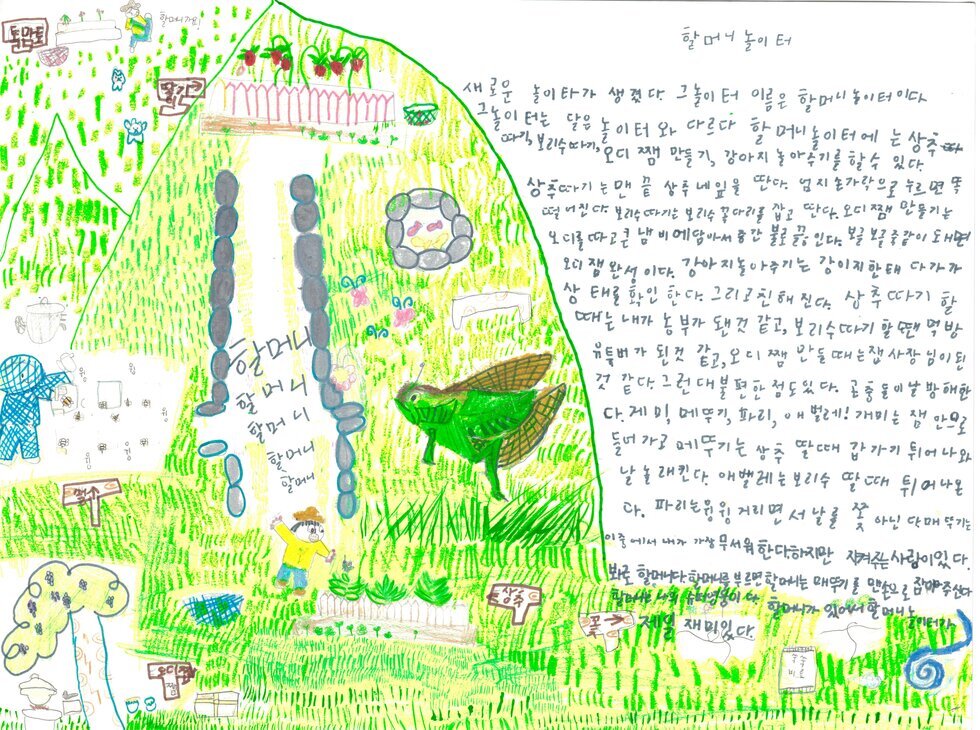 할머니 놀이터
새로운 놀이타가 생겼다. 그놀이터 이름은 할머니 놀이터이다
그놀이터는 닮은 놀이터와 다르다 할머니놀이터에는 상추따
따기, 보리수따기, 오디 쨈 만들기, 강아지 놀아주기를할수 있다.
상추따기는 맨 끝 상추네잎을 딴다. 엄지 손가락으로 누르면 뚝
떨어진다. 보리수따기는 보리수 꼭다리를 잡고 딴다. 오디쨈 만들기는
오디를 따고 큰 냄비에 담아서 중간 불로 끓인다. 보글보글 죽같이 돼면
오디 잼 완성이다. 강아지놀아주기는 강이지한태 다가가
상태를 확인 한다. 그리고 친해진다. 상추 따기 할
때는 내가 농부가 됀것 같고, 보리수따기 할땐 먹방
유튜버가 된것 같고, 오디 쨈 만들때는 잼사장님이 된
것 같다. 그런대 불편한 점도 있다. 곤충들이 날 방해한
다. 게미, 메뚜기, 파리, 애벌레! 개미는 잼 안으로
들어가고 메뚜기는 상추 딸때 갑가기 튀어나와
날 놀래킨다. 애벨레는 보리수 딸 때 튀어나온
다. 파리는 윙윙 거리면서 날를 쫓 아닌단매뚜기는
이중에서 내가 가장 무서워 한다하지만 지켜주는사람이있다.
봐로 할머니다. 할머니를 부르면 할머니는 매뚜기를 맨손으로 잡아주신다
할머니는 나의 영웅이다 할머니가 있어서 할머니 놀이터가
제일 재미있다.
토마토
할머니가요!
딸기
할머니
할머니
할머니
할머니
할머니
할머니
윙
윙
윙
윙
상추
꽃
오디쨈
쨈
비료